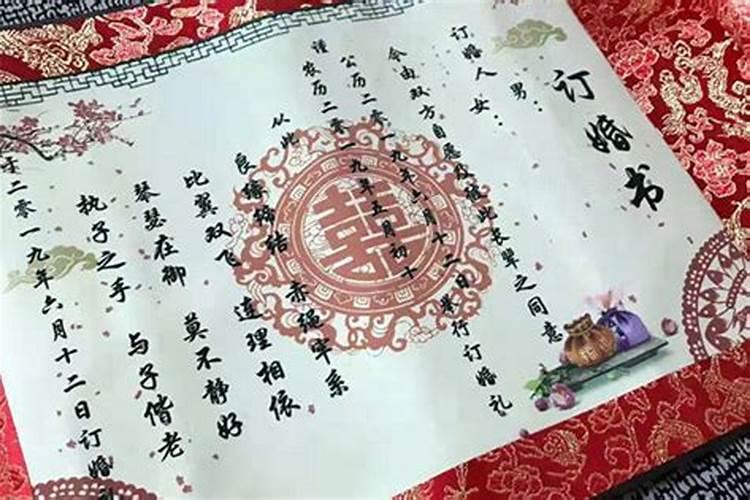 订婚书
订婚人 男：
女：
今由双方自愿及征得彼此长辈之同意
谨
公历二零一九年六月十二日举行订婚礼
农历二零一九年五月初十
从此
良缘缔结 赤绳牢系
比翼双飞 连理相依
琴瑟在御 莫不静好
执子之手 与子偕老
于二零一九年六月十二日订婚